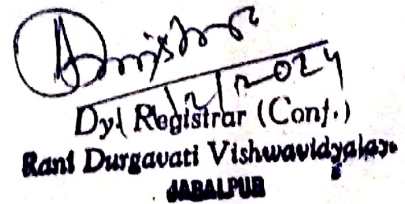 1/2/2024
Dy. Registrar (Conf.)
Rani Durgavati Vishwavidyalaya
JABALPUR